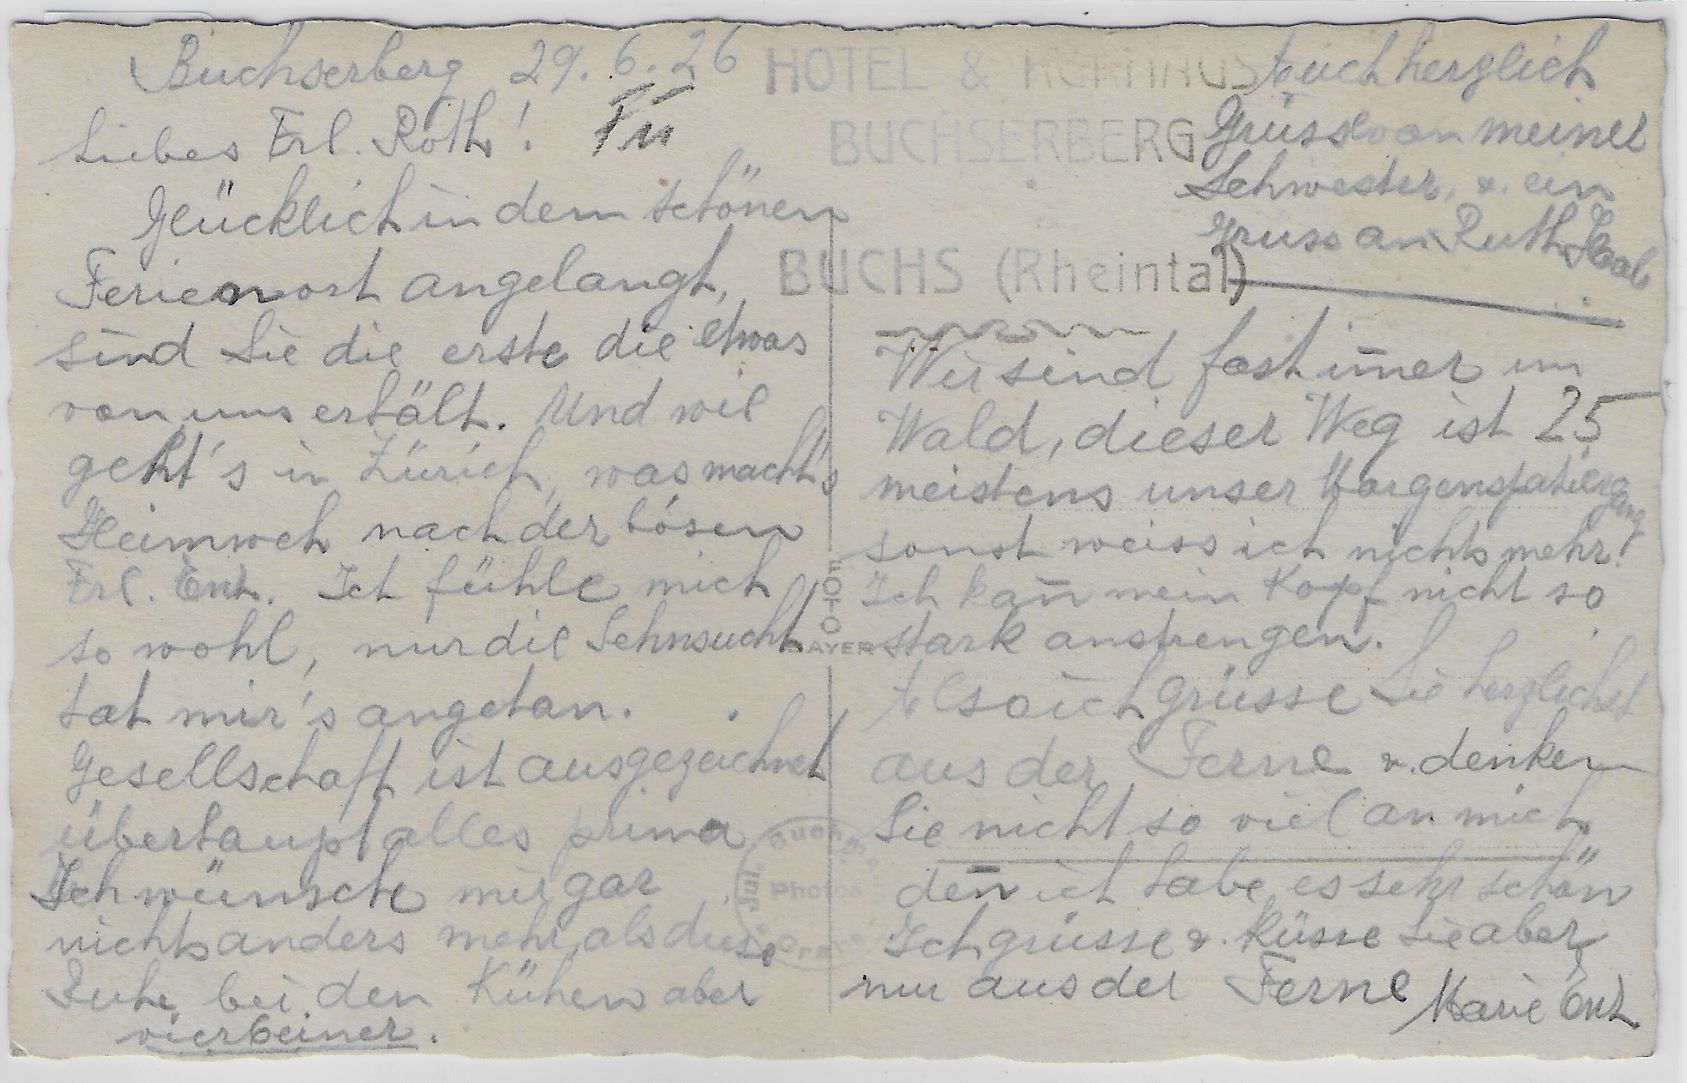 Buchserberg 29.6.26
Liebes Frl. Roth!
Glücklich in dem schönen
Ferienort angelangt,
sind Sie die erste die etwas
von uns erhält. Und wie
geht's in Zürich, was macht's
Heimweh nach der bösen
Frl. Enz. Ich fühle mich
so wohl, nur die Sehnsucht
hat mir's angetan.
Gesellschaft ist ausgezeichnet
überhaupt alles prima
Ich wünsche mir gar
nichts anders mehr, als diese
Ruhe bei den Kühen aber
vierbeiner.
HOTEL & KURHAUS
BUCHSERBERG
BUCHS (Rheintal)
Auch herzlich
Grüsse von meiner
Schwester, u. ein
Gruss an Ruth
Wir sind fast im̅er im
Wald, dieser Weg ist 25
meistens unser Morgenspatziergang
sonst weiss ich nichts mehr!
Ich kan̅ mein Kopf nicht so
stark anstrengen.
Also ich grüsse Sie herzlichst
aus der Ferne u. denken
Sie nicht so viel an mich,
den̅ ich habe es sehr schön
Ich grüsse u. küsse Sie aber
nur aus der Ferne Marie Enz.
FOTO
Photos